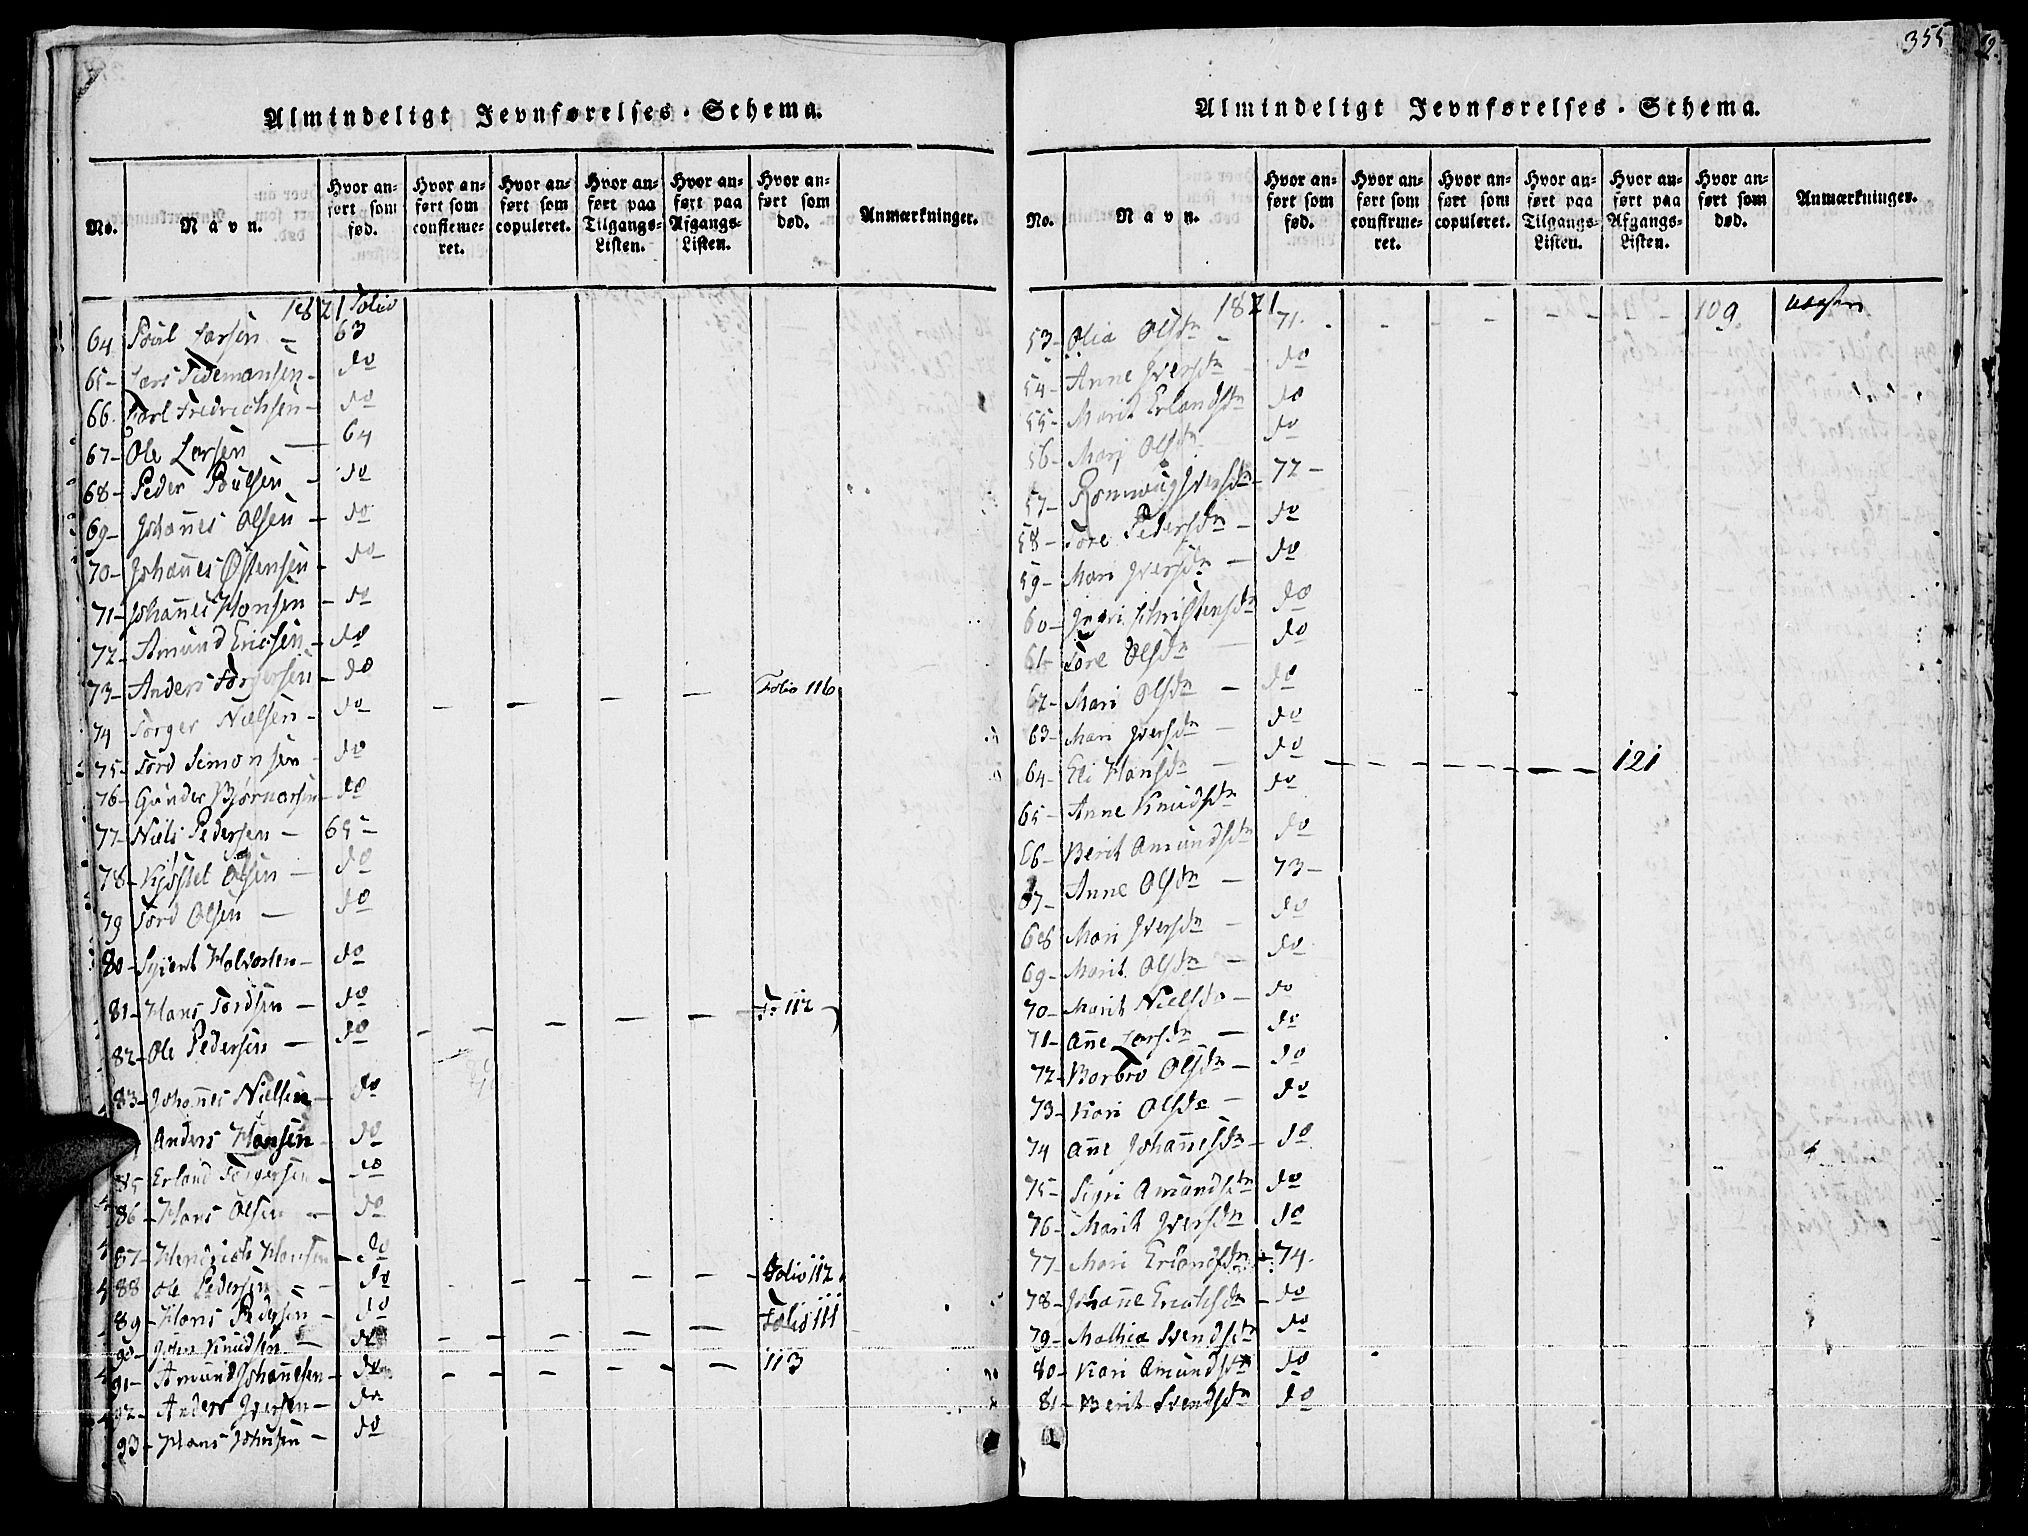 Almindeligt Jevnførelses-Schema.
No. Navn. Hvor anført som fød. Hvor anført som confirmeret. Hvor anført som copuleret. Hvor anført paa Tilgangs-Listen. Hvor anført paa Afgangs-Listen. Hvor anført som død. Anmærkninger.
1821 Folio
64 Poul Larsen - 63
65- Lars Tidemansen- do
66. Carl Fredrichsen- do
67- Ole Larsen - 64
68- Peder Poulsen - do
69- Johannes Olsen - do
70- Johannes Østensen - do
71- Johannes Hansen - do
72- Amund Ericsen - do
73- Anders Torgersen - do
74 Torger Nielsen - do - - - - Folio 116
75- Tord Simonsen - do
76- Gunder Bjørnersen- do
77- Niels Pedersen - 65-
78- Kjøstel Olsen - do
79 Tord Olsen - do
80- Syvert Halvorsen- do
81- Hans Tordsen - do
82- Ole Pedersen - do - - - - - Fo 112
83- Johannes Nielsen - do
Anders Hansen - do
85 Erland Torgersen - do
86- Hans Olsen - do
87- Hendrich Hansen - do
88 Ole Pedersen - do - - - - - Folio 112
89- Hans Pedersen - do Folio 111
90- John Knudsen - do - - - - -
91- Amund Johannesen- do - - - - - 113
92- Anders Iversen - do
93- Hans Johnsen - do
355
Almindeligt Jevnførelses-Schema.
No. Navn. Hvor anført som fød. Hvor anført som confirmeret. Hvor anført som copuleret. Hvor anført paa Tilgangs-Listen. Hvor anført paa Afgangs-Listen. Hvor anført som død. Anmærkninger.
1821
53- Olia Olsdn - 71. - - - - - 109
54- Anne Iversdn - do
55- Marit Erlandsdn do
56- Mari Olsdn do
57- Rønnoug Iversdn- 72-
58- Tore Pedersdn - do
59- Mari Iversdn - do
60- Ingri Christensdn do
61- Tore Olsdn - do
62- Mari Olsdn - do
63- Mari Iversdn - do
64- Eli Hansdn - do - - - - - - 121
65- Anne Knudsdn do
66- Berit Amundsdn do
67- Anne Olsdn - 73-
68 Mari Iversdn - do
69- Marit Olsdn - do
70- Marit Nielsdn - do
71- Anne Larsdn - do
72- Barbro Olsdn - do
73- Kari Olsdn - do
74 Anne Johannesdn - do
75- Sigri Amundsdn do
76- Marit Iversdn do
77- Mari Erlandsdn 74.
78- Johanne Erichsdn - do
79- Mathia Svendsdn do
80- Kari Amundsdn do
81- Berit Svendsdn do